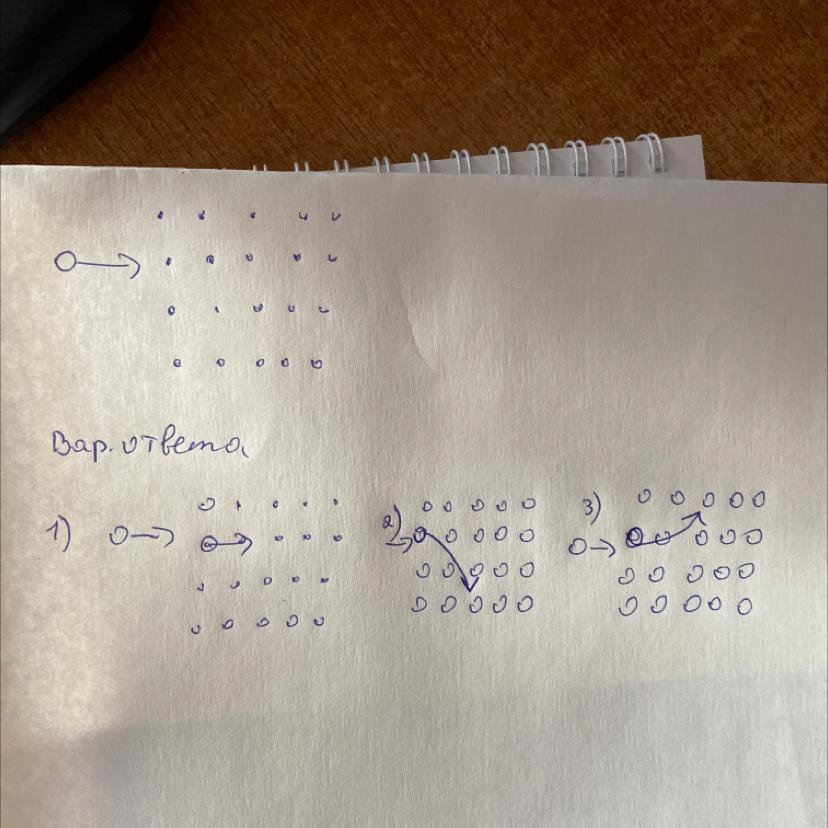 Вар. ответа
1) 2) 3)